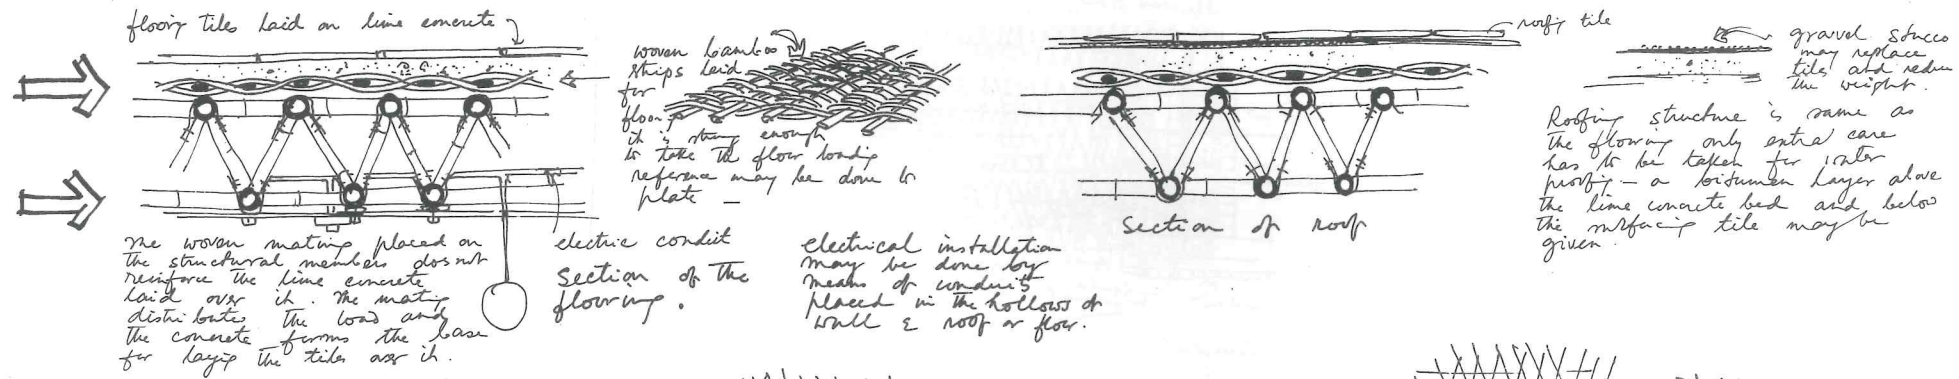 flooring tiles laid on lime concrete
woven bamboo
strips laid
for
floor,
it is strong enough
to take the floor loading
reference may be done to
plate —
The woven mating placed on
the structural members does not
reinforce the lime concrete
laid over it. The mating
distributes the load and
the concrete forms the base
for laying the tiles over it.
electric conduit
section of the
flooring.
electrical installation
may be done by
means of conduits
placed in the hollows of
wall & roof or floor.
roofing tile
section of roof
gravel stucco
may replace
tiles and reduce
the weight.
Roofing structure is same as
the flooring only extra care
has to be taken for water
proofing – a bitumen layer above
the lime concrete bed and below
the surfacing tile may be
given.